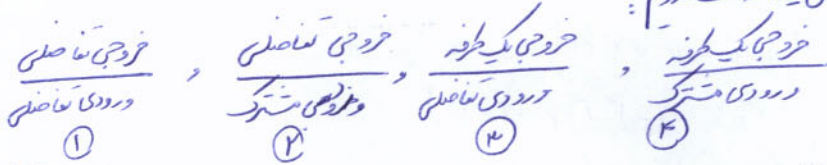 خروجی یک طرفه / ورودی مشترک ، خروجی یک طرفه / ورودی تفاضلی ، خروجی تفاضلی / ورودی مشترک ، خروجی تفاضلی / ورودی تفاضلی
④ ③ ② ①